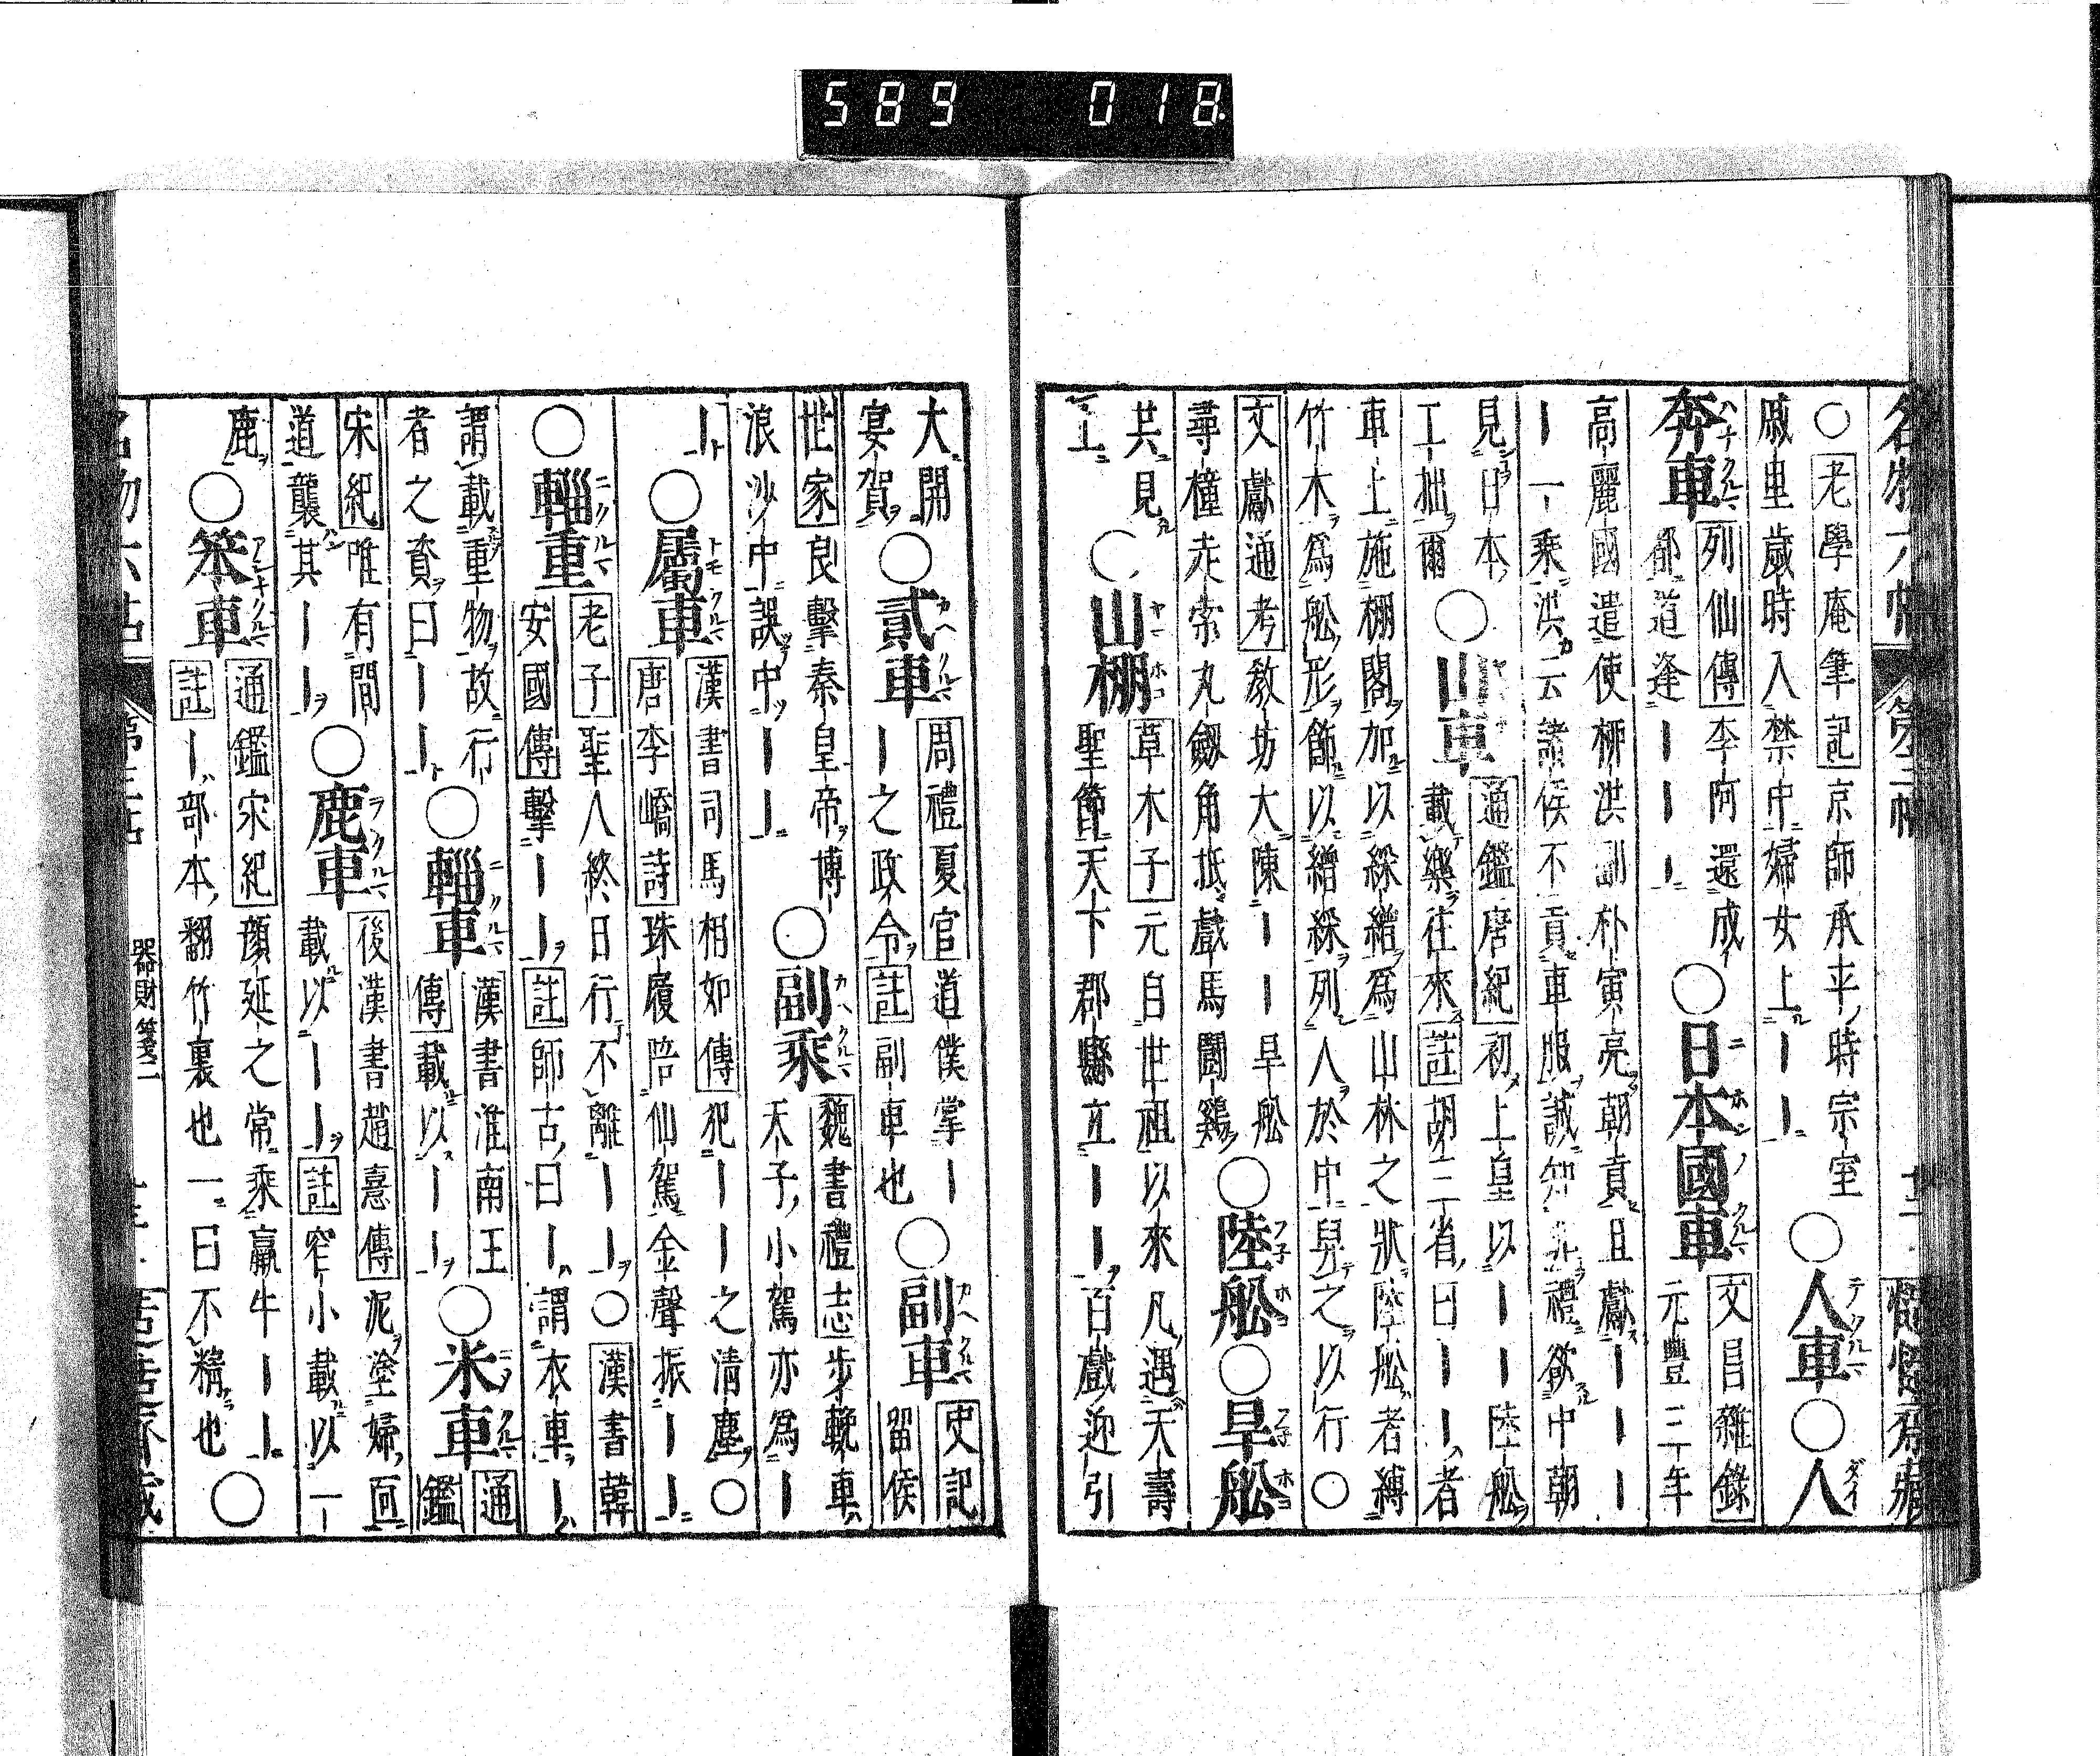 589 018.
名物六帖 第三帖 慥慥齋藏
○老學庵筆記京師承平時宗室
戚里歲時入禁中婦女上｜｜
○人車○人
奔車
列仙傳李阿還成
都道逢｜｜｜
○日本國車
文昌雜錄
元豐三年
高麗國遣使柳洪副朴寅亮朝貢且獻｜｜
｜一乘洪云諸侯不貢車服誠知非禮欲中朝
見日本
工拙爾
○山車
通鑑唐紀初上皇以｜｜陸舩
載樂往來註胡三省曰｜｜者
車上施棚閣加以綵繒爲山林之狀陸舩者縛
竹木爲舩形飾以繒綵列人於中舁之以行○
文獻通考教坊大陳｜｜旱舩
尋橦走索丸劔角抵戲馬鬪雞
○陸舩○旱舩
共見
上
○山棚
草木子元自世祖以來凡遇天壽
聖節天下郡縣立｜｜百戲迎引
大開
宴賀
○貳車
周禮夏官道僕掌｜
｜之政令註副車也
○副車
史記
留侯
世家良擊秦皇帝博
浪沙中誤中｜｜
○副乘
魏書禮志步輓車
天子小駕亦爲｜
｜
○屬車
漢書司馬相如傳犯｜｜之清塵○
唐李嶠詩珠履陪仙駕金聲振｜｜
○輜重
老子聖人終日行不離｜｜○漢書韓
安國傳擊｜｜註師古曰｜謂衣車｜
謂載重物故行
者之資曰｜｜
○輜車
漢書淮南王
傳載以｜｜
○米車
通
鑑
宋紀唯有間
道襲其｜｜
○鹿車
後漢書趙憙傳泥塗婦面
載以｜｜註窄小載以一
鹿
○笨車
通鑑宋紀顔延之常乘羸牛｜｜
註｜部本翻竹裏也一曰不精也
○
器財箋二